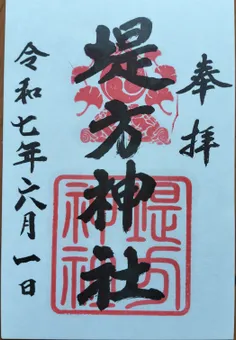 奉拝
堤方神社
令和七年六月一日
堤方
神社